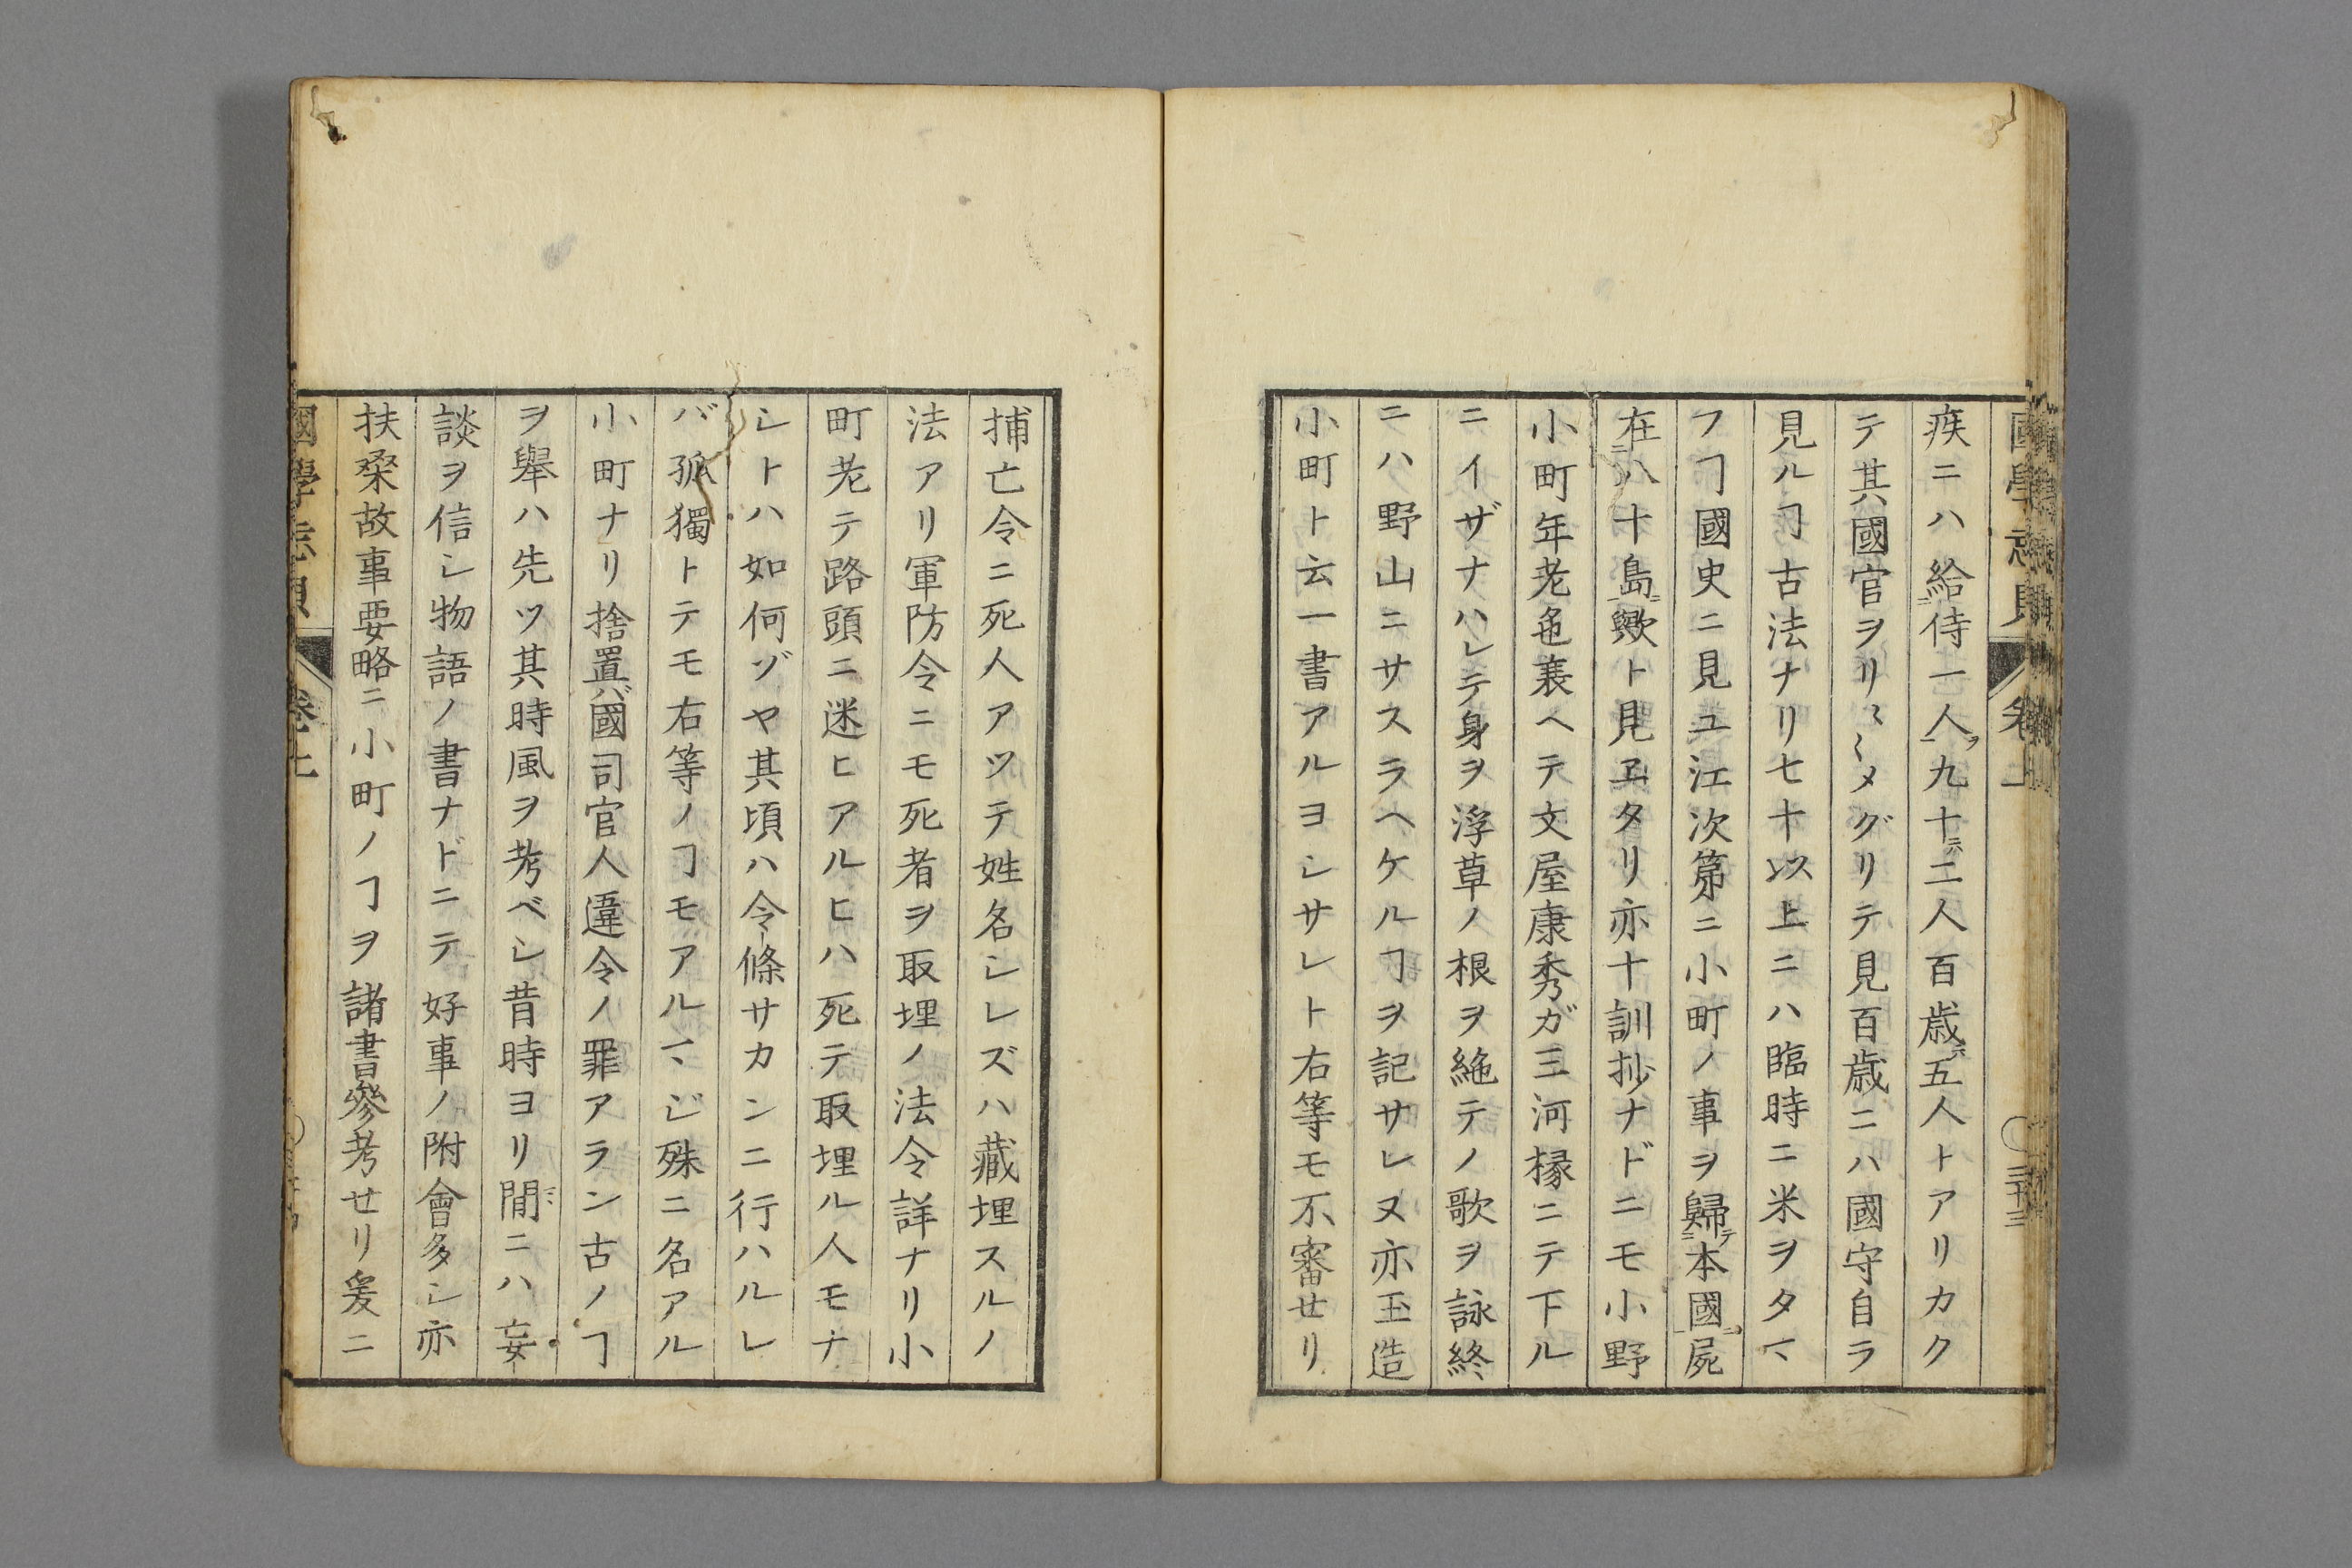 疾ニハ給侍一人ヲ九十ニハ二人百歳ニハ五人トアリカク
テ其國官ヲリ〱メグリテ見百歳ニハ國守自ラ
見ルヿ古法ナリ七十以上ニハ臨時ニ米ヲタマ
フヿ國史ニ見ユ江次第ニ小町ノ事ヲ歸テ本國ニ屍
在八十島ニ歟ト見ヱタリ亦十訓抄ナドニモ小野
小町年老色衰ヘテ文屋康秀ガ三河椽ニテ下ル
ニイザナハレテ身ヲ浮草ノ根ヲ絶テノ歌ヲ詠終
ニハ野山ニサスラヘケルヿヲ記サレヌ亦玉造
小町ト云一書アルヨシサレト右等モ不審せリ
捕亡令ニ死人アツテ姓名シレズハ藏埋スルノ
法アリ軍防令ニモ死者ヲ取埋ノ法令詳ナリ小
町老テ路頭ニ迷ヒアルヒハ死テ取埋ル人モナ
シトハ如何ゾヤ其頃ハ令條サカンニ行ハルレ
バ孤獨トテモ右等ノヿモアルマジ殊ニ名アル
小町ナリ捨置バ國司官人違令ノ罪アラン古ノヿ
ヲ舉ハ先ツ其時風ヲ考ベシ昔時ヨリ間ニハ妄
談ヲ信シ物語ノ書ナドニテ好事ノ附會多シ亦
扶桑故事要略ニ小町ノヿヲ諸書參考せリ爰ニ